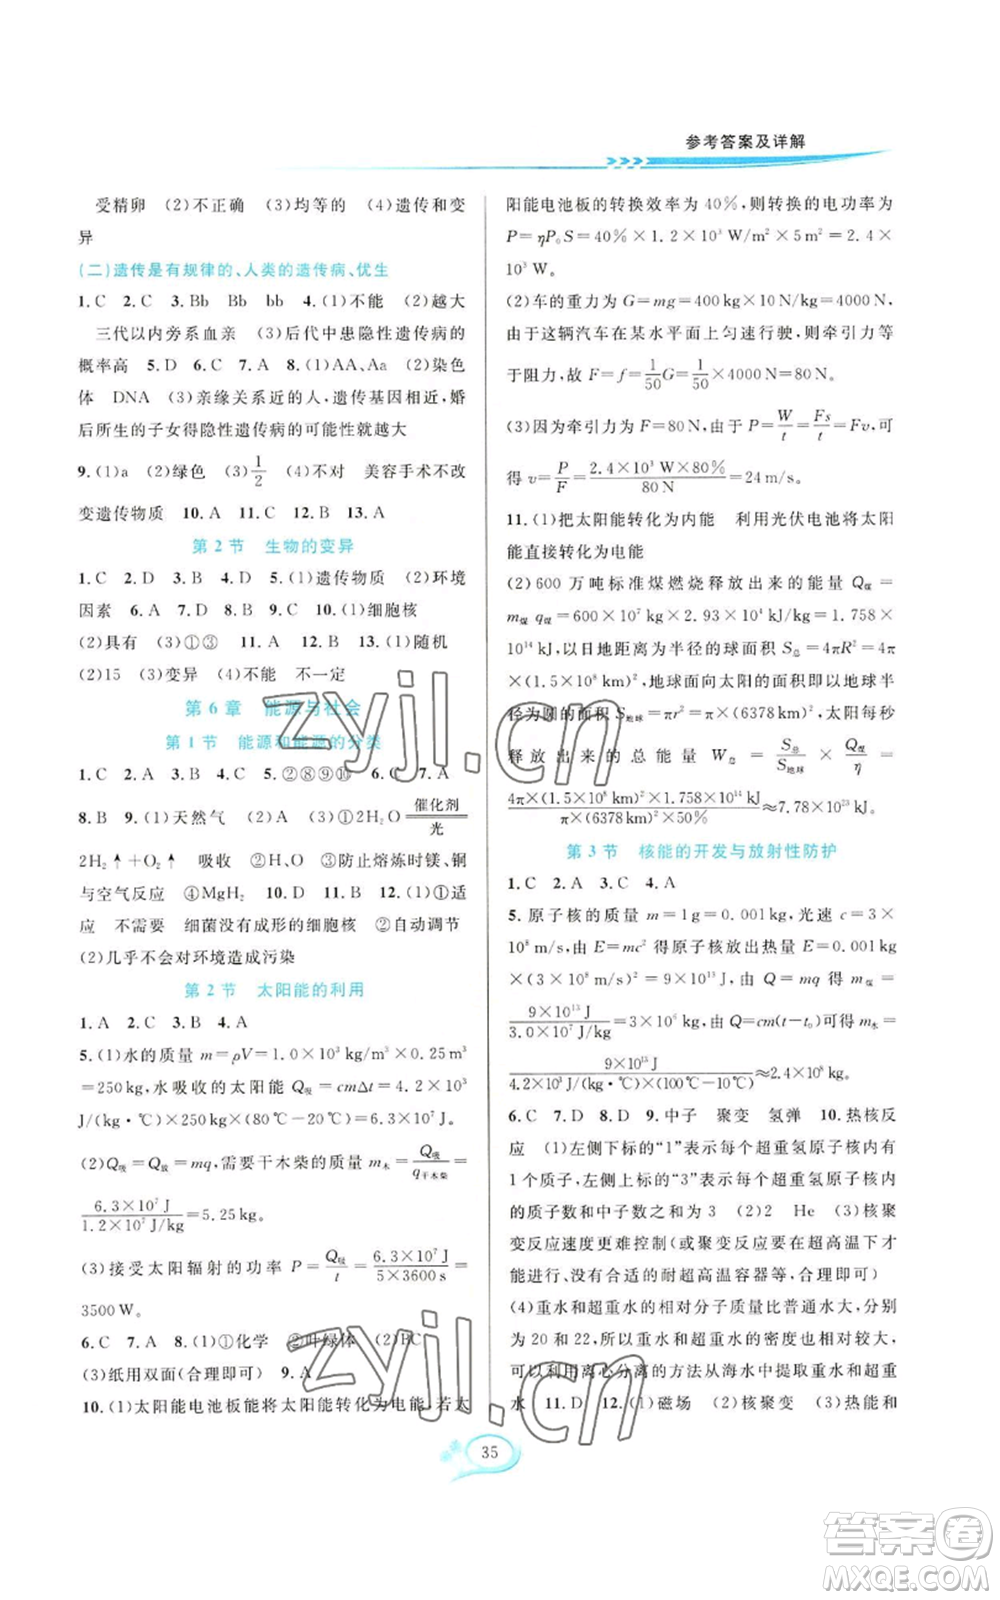 参考答案及详解
受精卵 (2)不正确 (3)均等的 (4)遗传和变
异
(二)遗传是有规律的、人类的遗传病、优生
1. C 2. C 3. Bb Bb bb 4. (1)不能 (2)越大
三代以内旁系血亲 (3)后代中患隐性遗传病的
概率高 5. D 6. C 7. A 8. (1)AA、Aa (2)染色
体 DNA (3)亲缘关系近的人,遗传基因相近,婚
后所生的子女得隐性遗传病的可能性就越大
9. (1)a (2)绿色 (3)1/2 (4)不对 美容手术不改
变遗传物质 10. A 11. C 12. B 13. A
第2节 生物的变异
1. C 2. D 3. B 4. D 5. (1)遗传物质 (2)环境
因素 6. A 7. D 8. D 9. C 10. (1)细胞核
(2)具有 (3)①③ 11. A 12. B 13. (1)随机
(2)15 (3)变异 (4)不能 不一定
第6章 能源与社会
第1节 能源和能源的分类
1. C 2. A 3. C 4. C 5. ②⑧⑨⑩ 6. C 7. A
8. B 9. (1)天然气 (2)A (3)①2H₂O =催化剂/光=
2H₂↑+O₂↑ 吸收 ②H₂ ③防止熔炼时镁、铜
与空气反应 ④MgH₂ 10. A 11. C 12. (1)①适
应 不需要 细菌没有成形的细胞核 ②自动调节
(2)几乎不会对环境造成污染
第2节 太阳能的利用
1. A 2. C 3. B 4. A
5. (1)水的质量 m=ρV=1.0×10³ kg/m³×0.25 m³
=250 kg,水吸收的太阳能 Q吸=cmΔt=4.2×10³
J/(kg·℃)×250 kg×(80℃-20℃)=6.3×10⁷ J
(2)Q吸=Q放=mq,需要干木柴的质量 m木=Q吸/q干木柴=
6.3×10⁷ J/1.2×10⁷ J/kg=5.25 kg。
(3)接受太阳辐射的功率 P=Q吸/t=6.3×10⁷ J/5×3600 s=
3500 W。
6. C 7. A 8. (1)①化学 ②叶绿体 (2)BC
(3)纸用双面(合理即可) 9. A
10. (1)太阳能电池板能将太阳能转化为电能,若太
阳能电池板的转换效率为40%,则转换的电功率为
P=ηP₀S=40%×1.2×10³ W/m²×5 m²=2.4×
10³ W。
(2)车的重力为G=mg=400 kg×10 N/kg=4000 N,
由于这辆汽车在某水平面上匀速行驶,则牵引力等
于阻力,故 F=f=1/50G=1/50×4000 N=80 N。
(3)因为牵引力为 F=80 N,由于 P=W/t=Fs/t=Fv,可
得 v=P/F=2.4×10³ W×80%/80 N=24 m/s。
11. (1)把太阳能转化为内能 利用光伏电池将太阳
能直接转化为电能
(2)600万吨标准煤燃烧释放出来的能量 Q煤=
m煤 q煤=600×10⁷ kg×2.93×10⁴ kJ/kg=1.758×
10¹⁴ kJ,以日地距离为半径的球面积 S总=4πR²=4π
×(1.5×10⁸ km)²,地球面向太阳的面积即以地球半
径为圆的面积 S地球=πr²=π×(6378 km)²,太阳每秒
释放出来的总能量 W总=S总/S地球×Q煤/η=
4π×(1.5×10⁸ km)²×1.758×10¹⁴ kJ/π×(6378 km)²×50%≈7.78×10²³ kJ。
第3节 核能的开发与放射性防护
1. C 2. A 3. C 4. A
5. 原子核的质量 m=1 g=0.001 kg,光速 c=3×
10⁸ m/s,由 E=mc² 得原子核放出热量 E=0.001 kg
×(3×10⁸ m/s)²=9×10¹³ J,由 Q=mq 得 m煤=
9×10¹³ J/3.0×10⁷ J/kg=3×10⁶ kg,由 Q=cm(t-t₀)得 m水=
9×10¹³ J/4.2×10³ J/(kg·℃)×(100℃-10℃)≈2.4×10⁸ kg。
6. C 7. D 8. D 9. 中子 聚变 氢弹 10. 热核反
应 (1)左侧下标的“1”表示每个超重氢原子核内有
1个质子,左侧上标的“3”表示每个超重氢原子核内
的质子数和中子数之和为3 (2)2 He (3)核聚
变反应速度更难控制(或聚变反应需在超高温下才
能进行,没有合适的耐超高温容器等,合理即可)
(4)重水和超重水的相对分子质量比普通水大,分别
为20和22,所以重水和超重水的密度也相对较大,
可以利用离心分离的方法从海水中提取重水和超重
水 11. D 12. (1)磁场 (2)核聚变 (3)热能和
35
zyjl.cn
zyjl.cn
答案圈
MXQE.COM